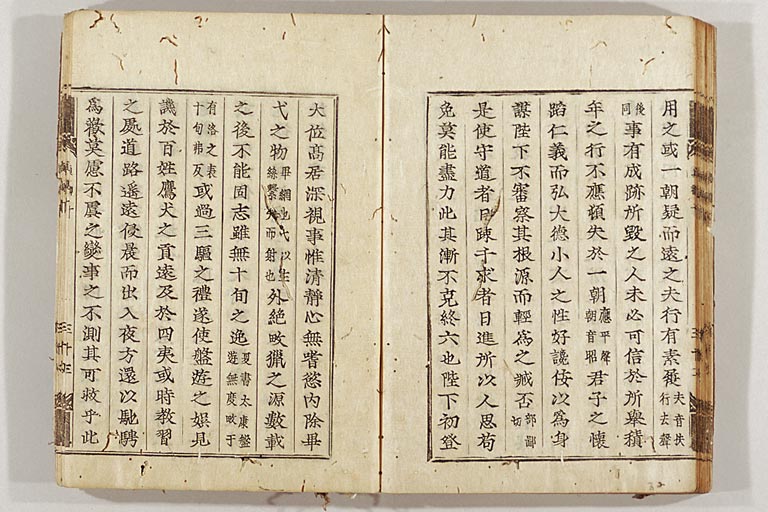 用之或一朝疑而遠之夫行有素履夫音扶行去聲
後同事有成跡所毀之人未必可信於所舉積
年之行不應頓失於一朝應平聲朝音君子之懷
蹈仁義而弘大德小人之性好讒佞以為身
謀陛下不審察其根源而輕為之臧否部鄙切
是使守道者日疎干求者日進所以人思苟
免莫能盡力此其漸不克終六也陛下初登
大位高居深視事惟清靜心無嗜慾內除畢
弋之物畢網也弋以生絲繫矢而射也外絕畋獵之源數載
之後不能固志雖無十旬之逸夏書太康盤遊無度畋于
有洛之表十旬弗反或過三驅之禮遂使盤遊之娛見
譏於百姓鷹犬之貢遠及於四夷或時教習
之處道路遙遠侵晨而出入夜方還以馳騁
為歡莫慮不虞之變事之不測其可救乎此